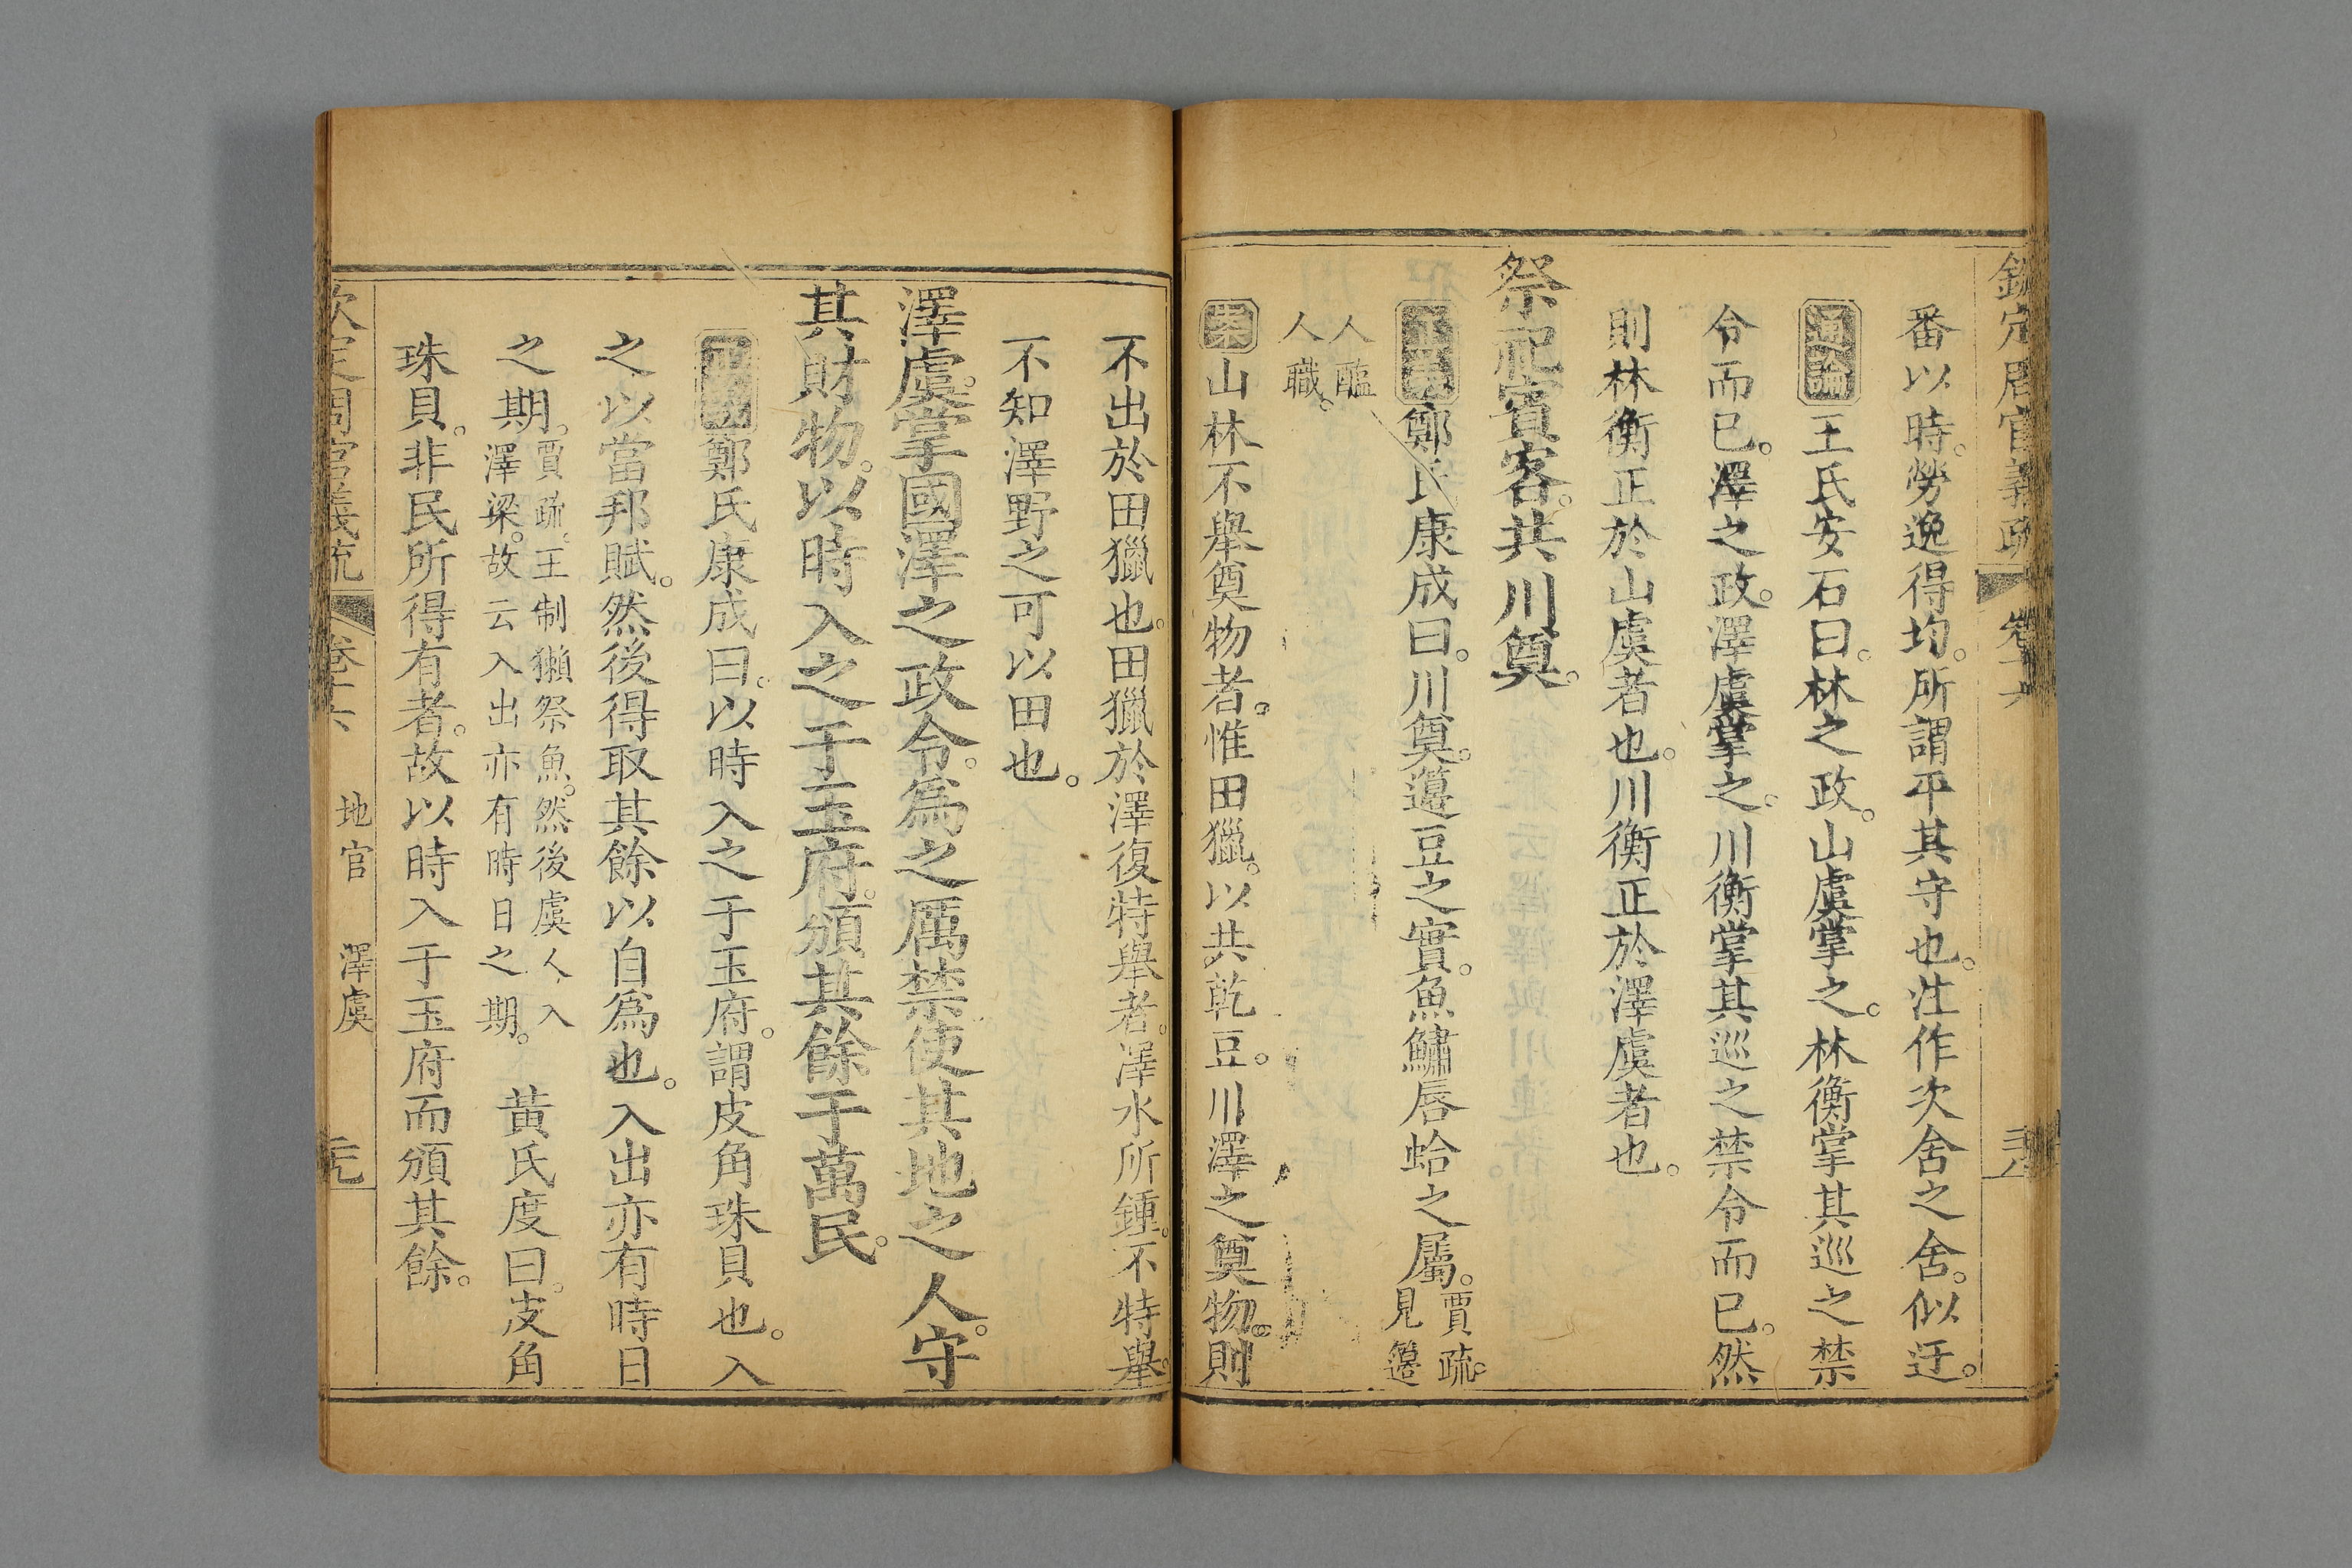 欽定周官義疏 卷十六
番以時。勞逸得均。所謂平其守也。注作次舍之舍。似迂。
通論 王氏安石曰。林之政。山虞掌之。林衡掌其巡之禁
令而已。澤之政。澤虞掌之。川衡掌其巡之禁令而已。然
則林衡正於山虞者也。川衡正於澤虞者也。
祭祀賓客。共川奠。
正義 鄭氏康成曰。川奠。籩豆之實。魚鱐蜃蛤之屬。賈疏。見籩
人醢人職。
案 山林不舉奠物者。惟田獵。以共乾豆。川澤之奠物。則
不出於田獵也。田獵於澤復特舉者。澤水所鍾。不特舉。
不知澤野之可以田也。
澤虞。掌國澤之政令。為之厲禁。使其地之人。守
其財物。以時入之于玉府。頒其餘于萬民。
正義 鄭氏康成曰。以時入之于玉府。謂皮角珠貝也。入
之以當邦賦。然後得取其餘以自為也。入出亦有時日
之期。賈疏。王制獺祭魚。然後虞人入澤梁。故云入出亦有時日之期。 黃氏度曰。皮角
珠貝。非民所得有者。故以時入于玉府而頒其餘。
欽定周官義疏 卷十六 地官 澤虞 元